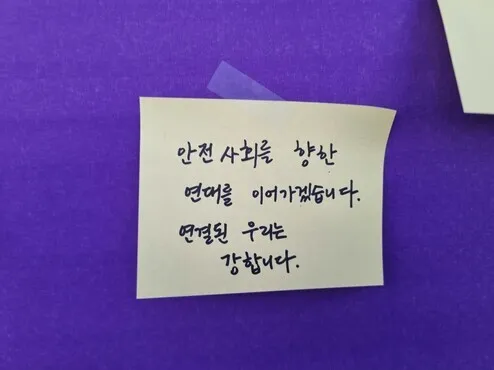 안전 사회를 향한
연대를 이어가겠습니다.
연결된 우리는
강합니다.